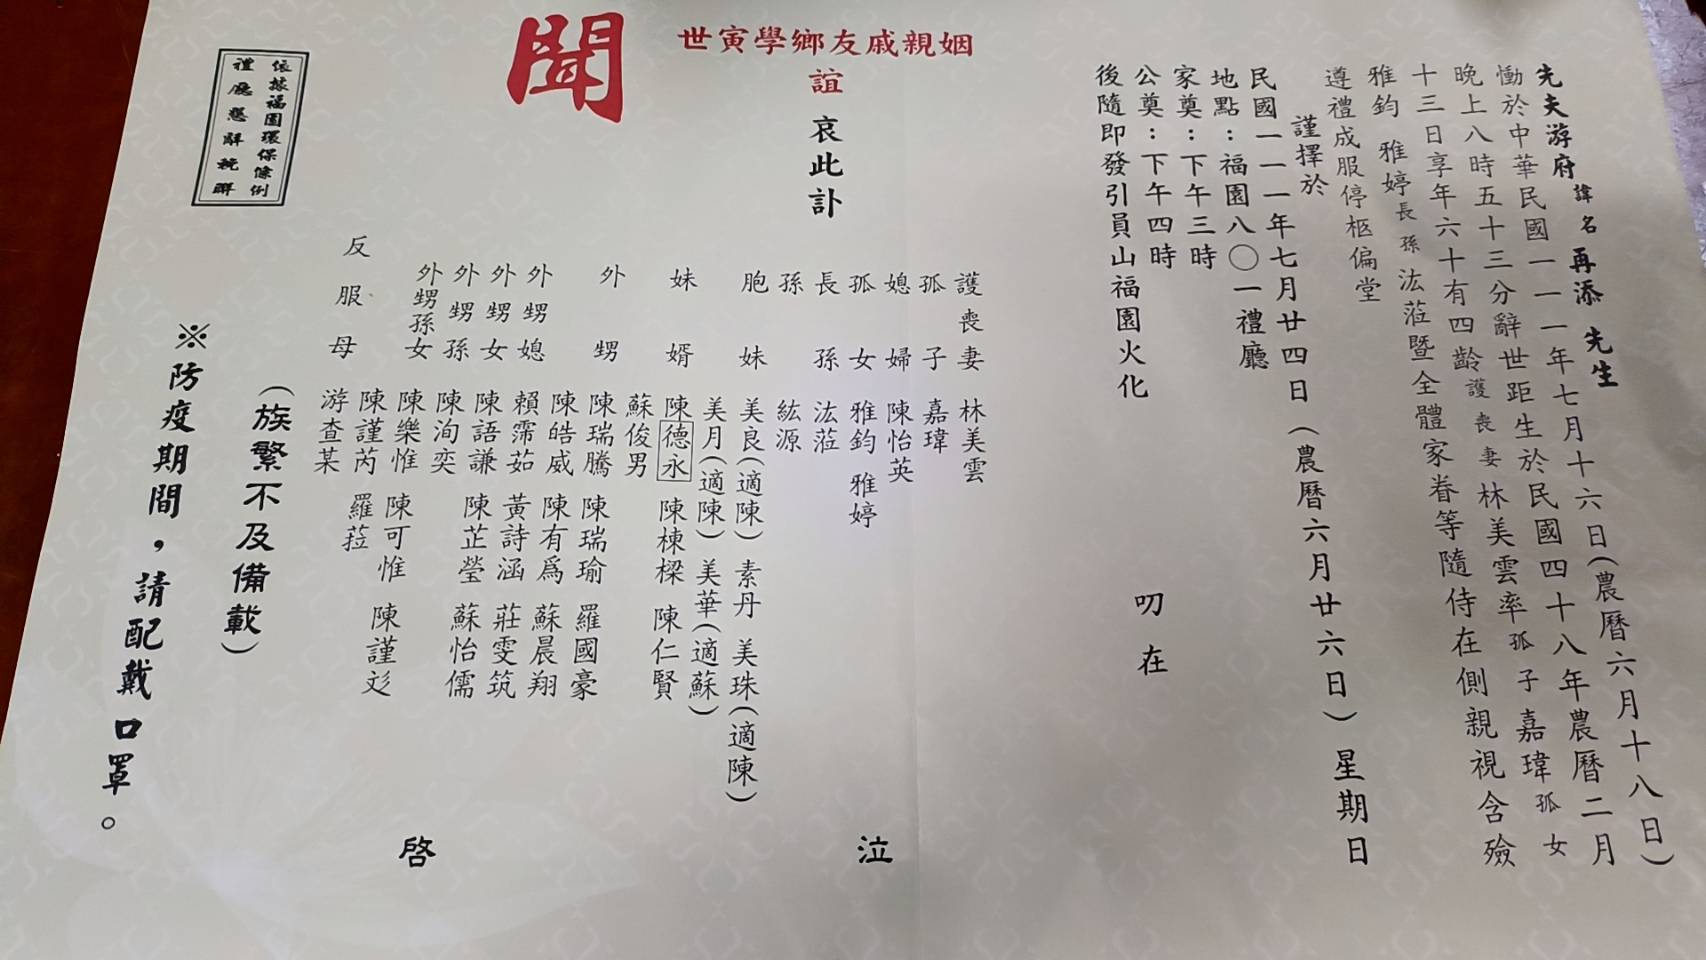 先夫游府諱名再添先生
慟於中華民國一一一年七月十六日(農曆六月十八日)
晚上八時五十三分辭世距生於民國四十八年農曆二月
十三日享年六十有四齡護喪妻林美雲率孤子嘉瑋孤女
雅鈞 雅婷長孫法蒞暨全體家眷等隨侍在側親視含殮
遵禮成服停柩偏堂
謹擇於
民國一一一年七月廿四日(農曆六月廿六日)星期日
地點:福園八〇一禮廳
家奠:下午三時
公奠:下午四時
後隨即發引員山福園火化
叨在
世寅學鄉友戚親姻
誼 哀此訃
聞
護喪妻 林美雲
孤子 嘉瑋
媳婦 陳怡英
孤女 雅鈞 雅婷
長孫 法蒞
孫 紘源
胞妹 美良(適陳) 素丹 美珠(適陳)
美月(適陳) 美華(適蘇)
妹婿 陳德永 陳棟樑 陳仁賢
蘇俊男
外甥 陳瑞騰 陳瑞瑜 羅國豪
陳皓威 陳有為 蘇晨翔
外甥媳 賴霈茹 黃詩涵 莊雯筑
外甥女 陳語謙 陳芷瑩 蘇怡儒
外甥孫 陳洵奕
外甥孫女 陳樂惟 陳可惟 陳謹彣
陳謹芮 羅菈
反服母 游查某
泣
啓
(族繁不及備載)
※防疫期間，請配戴口罩。
依據福園環保條例
禮廳懇辭輓聯